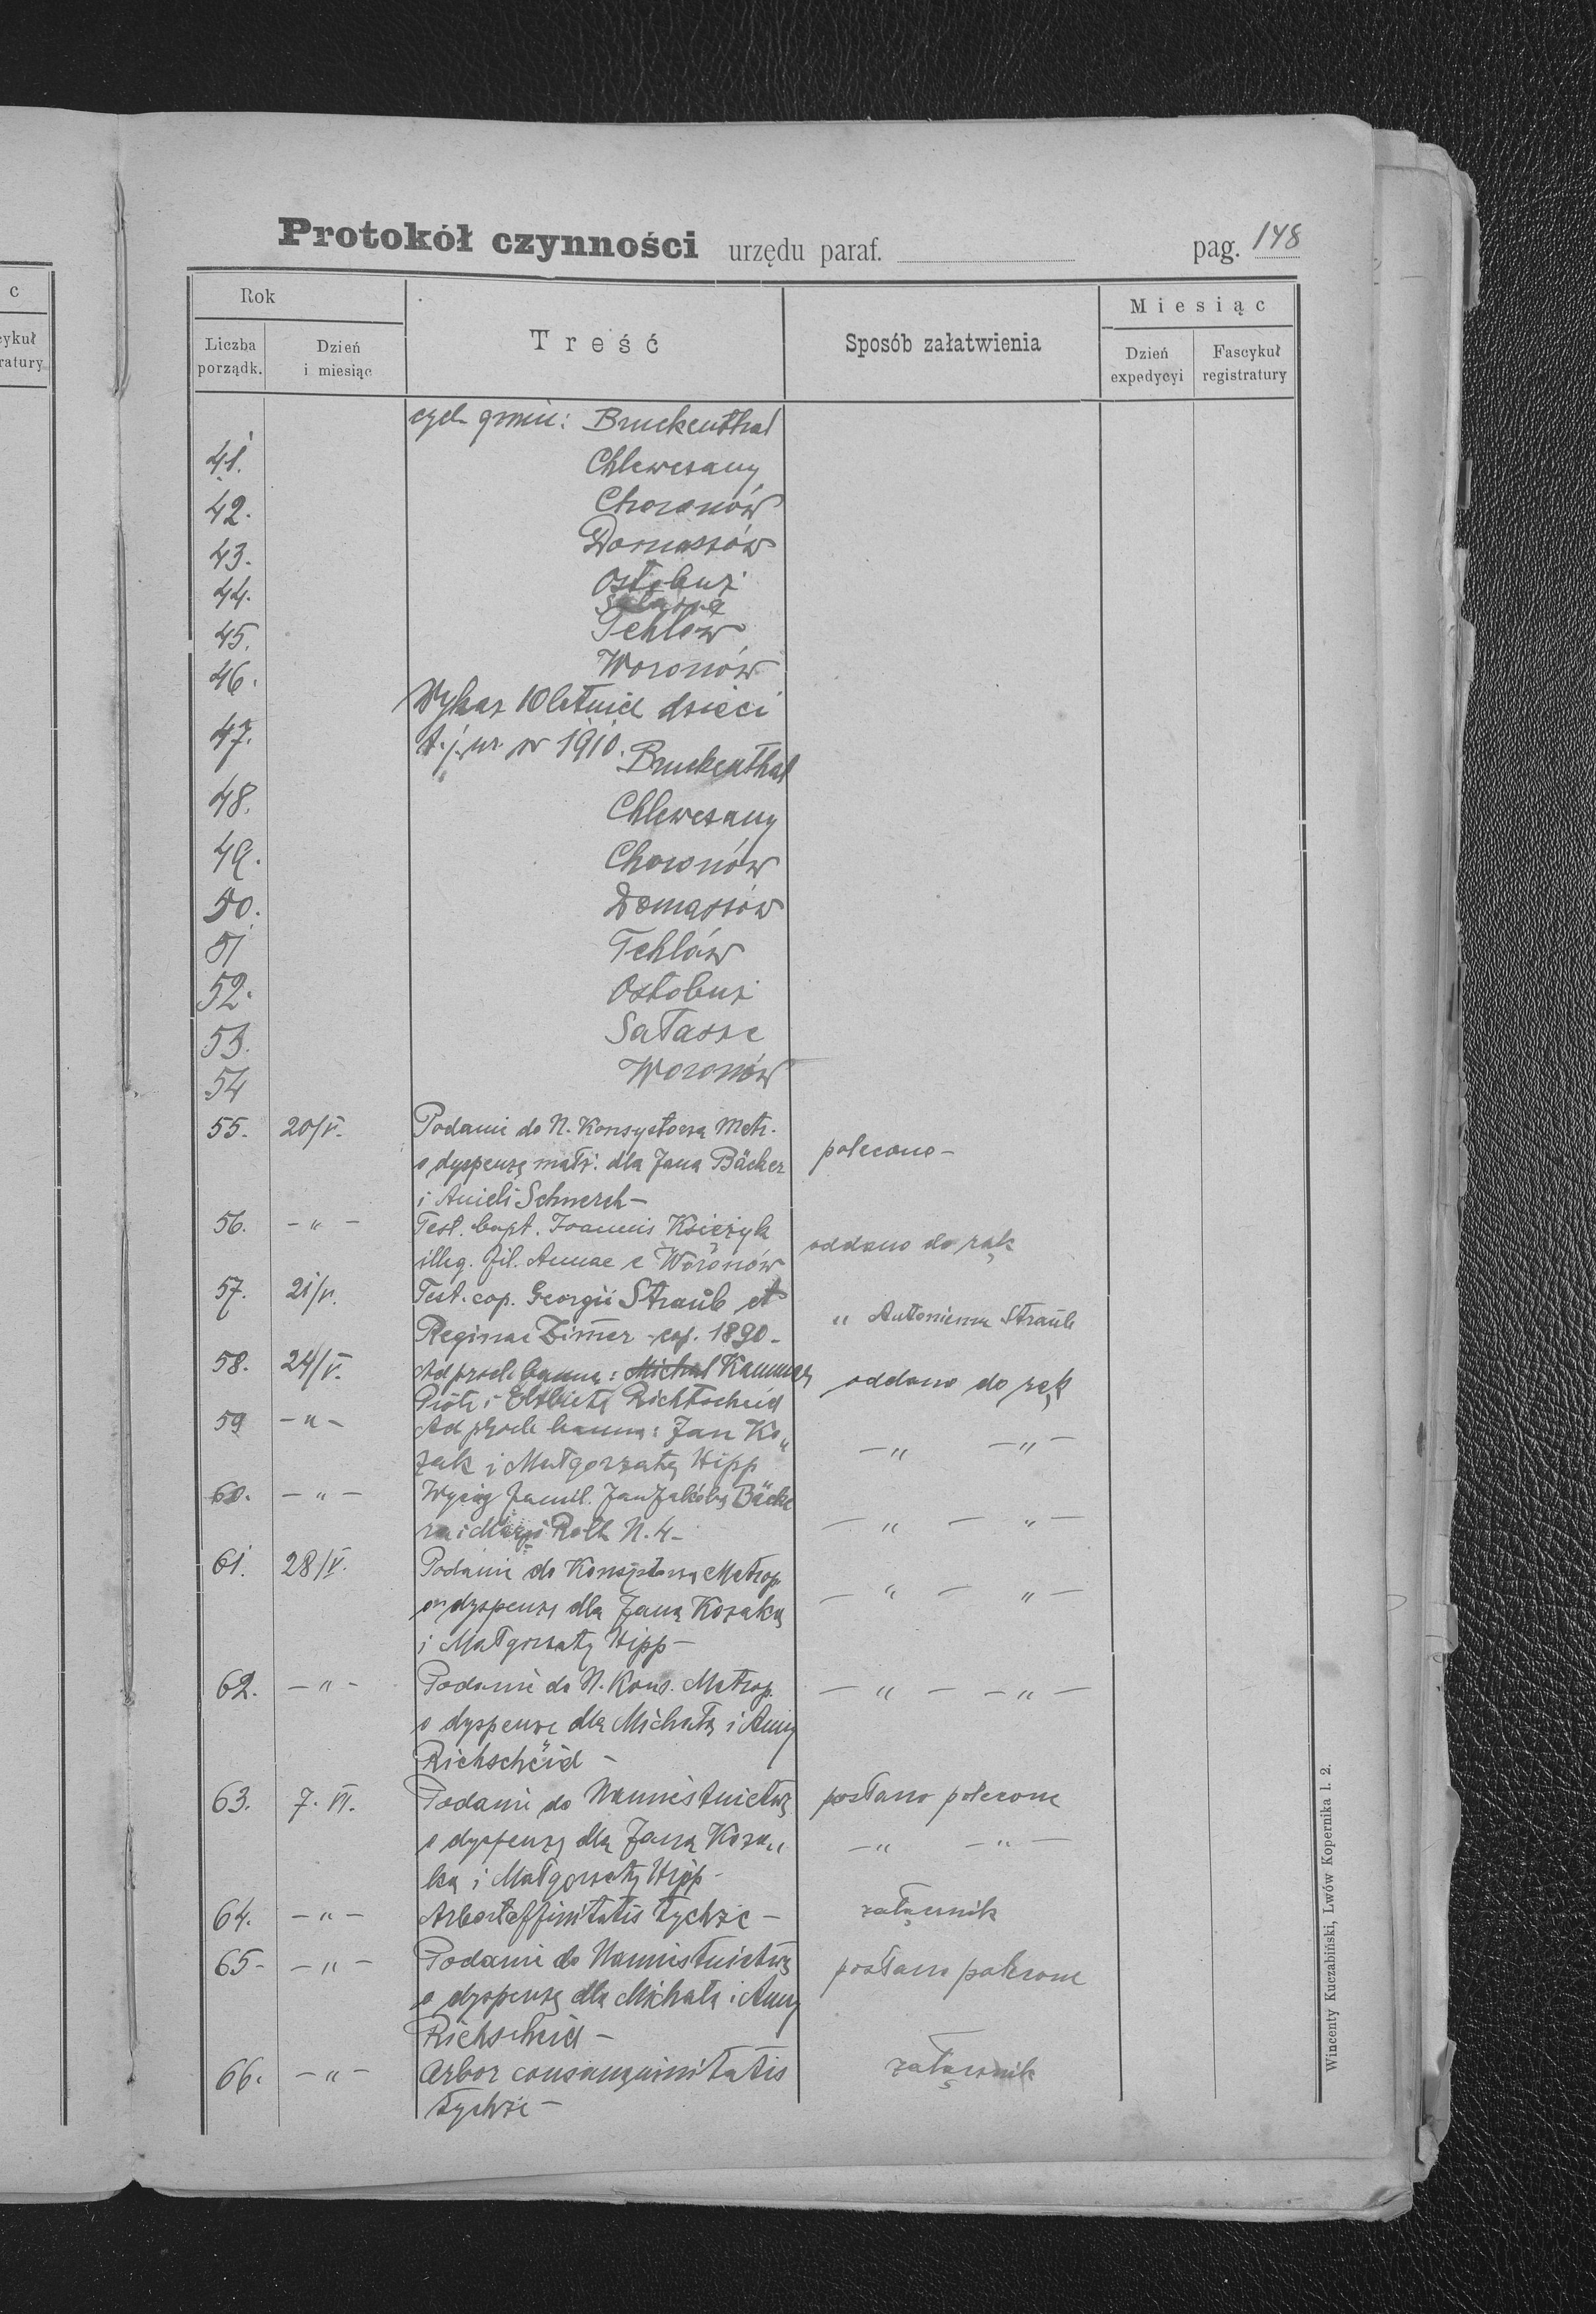 Protokół czynności urzędu paraf. pag. 148
c
cykuł
ratury
Rok
Liczba porządk.
Dzień i miesiąc
Treść
Sposób załatwienia
Miesiąc
Dzień expedycyi
Fascykuł registratury
gmin: Bruckenthal
41. Chlewczany
42. Choronów
43. Domaszów
44. Ostobuż
45. Tehlów
46. Woronów
Wykaz 10 letnich dzieci
47. t. j. ur. w 1910. Bruckenthal
48. Chlewczany
49. Choronów
50. Domaszów
51 Tehlów
52. Ostobuż
53. Sałasze
54 Woronów
55. 20/V. Podanie do N. Konsystorza Metr.
o dyspenzę małż. dla Jana Bäcker polecono-
i Anieli Schmerch-
56. -"- Test. bapt. Joannis Księżyk
illeg. fil. Annae e Woronów oddano do rąk
57. 21/V. Test. cop. Georgii Straub et
Reginae Zimer - cop. 1890- " Antoniemu Straub
58. 24/V. Ad proch banna: Michal
Piotr i Elżbieta Richtscheid oddano do rąk
59 -"- Ad proch banna: Jan Ko„
zak i Małgorzata Hipp -" -"-
60. -"- Wyciąg famil. Jan Jakóba Bäcke
ra i Maryi Roth N. 4- -"- "-
61. 28/V. Podanie do Konsystorza Metrop.
o dyspenzę dla Jana Kozaka -"- "-
i Małgorzaty Hipp-
62. -"- Podanie do N. Kons. Metrop. -"- -"-
o dyspenzę dla Michała i Anny
Richscheid -
63. 7. VI. Podanie do Namiestnictwa posłano polecone
o dyspenzę dla Jana Koza„ -" -"-
ka i Małgorzaty Hipp-
64. -"- Arbor affinitatis tychże- załącznik
65- -"- Podanie do Namiestnictwa posłano polecone
o dyspenzę dla Michała i Anny
Richscheid-
66. -"- Arbor consanguinitatis załącznik
tychże-
Wincenty Kuczabiński, Lwów Kopernika l. 2.